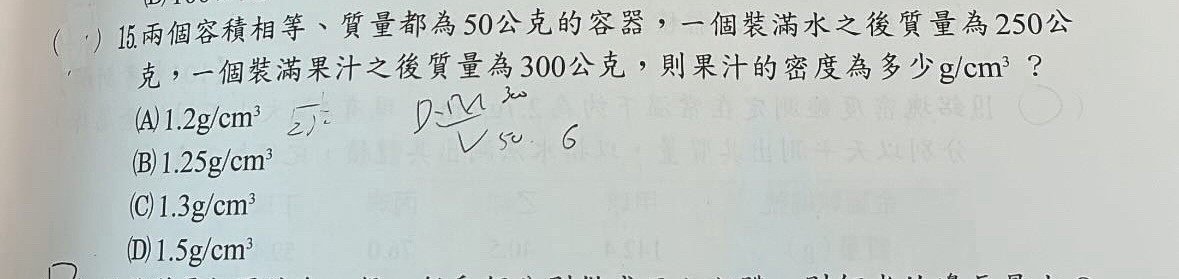 ( ) 15.兩個容積相等、質量都為50公克的容器，一個裝滿水之後質量為250公
克，一個裝滿果汁之後質量為300公克，則果汁的密度為多少g/cm³？
(A)1.2g/cm³
D=M 300
V 50. 6
(B)1.25g/cm³
(C)1.3g/cm³
(D)1.5g/cm³